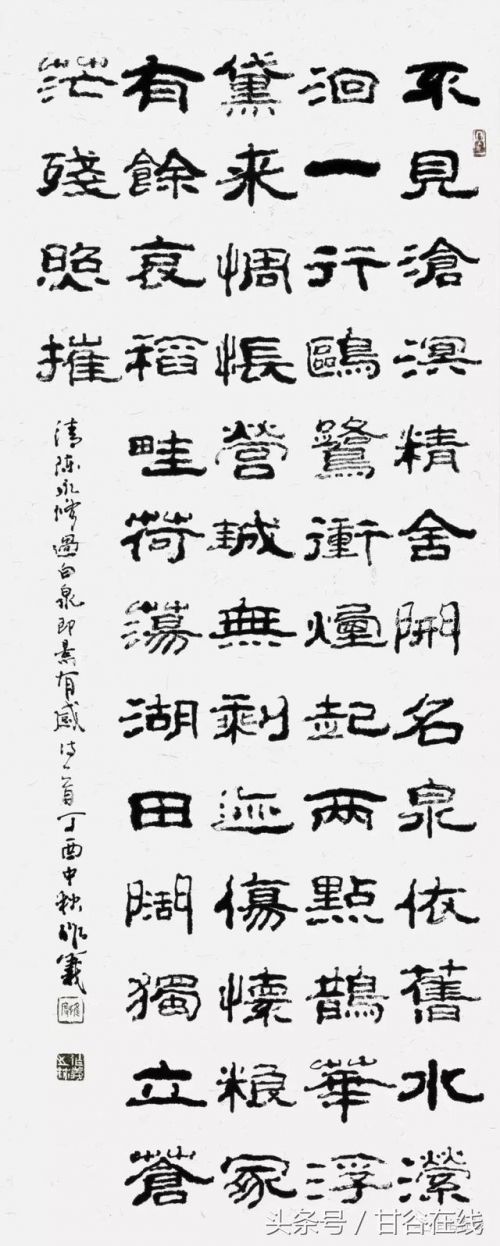 不見滄溟精舍開名泉依舊水瀠
洄一行鷗鷺衝煙起兩點鵲華浮
黛来惆悵營城無剩迹傷懷粮冢
有餘哀稻畦荷蕩湖田闊獨立蒼
茫殘照摧
清陳永修過白泉即景有感詩一首丁酉中秋作
头条号/甘谷在线